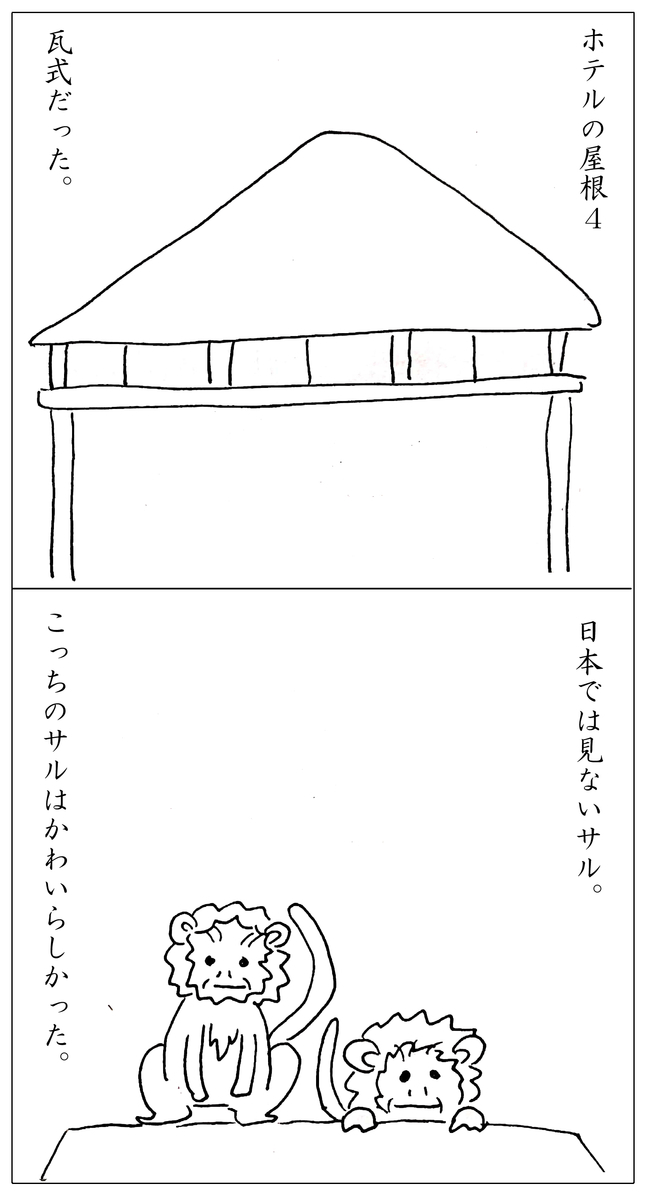 ホテルの屋根4
瓦式だった。
日本では見ないサル。
こっちのサルはかわいらしかった。